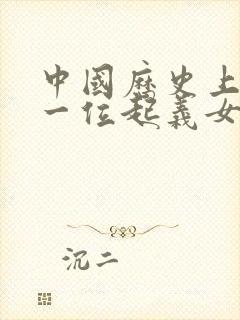 中國歷史上
一位起義女
沉二